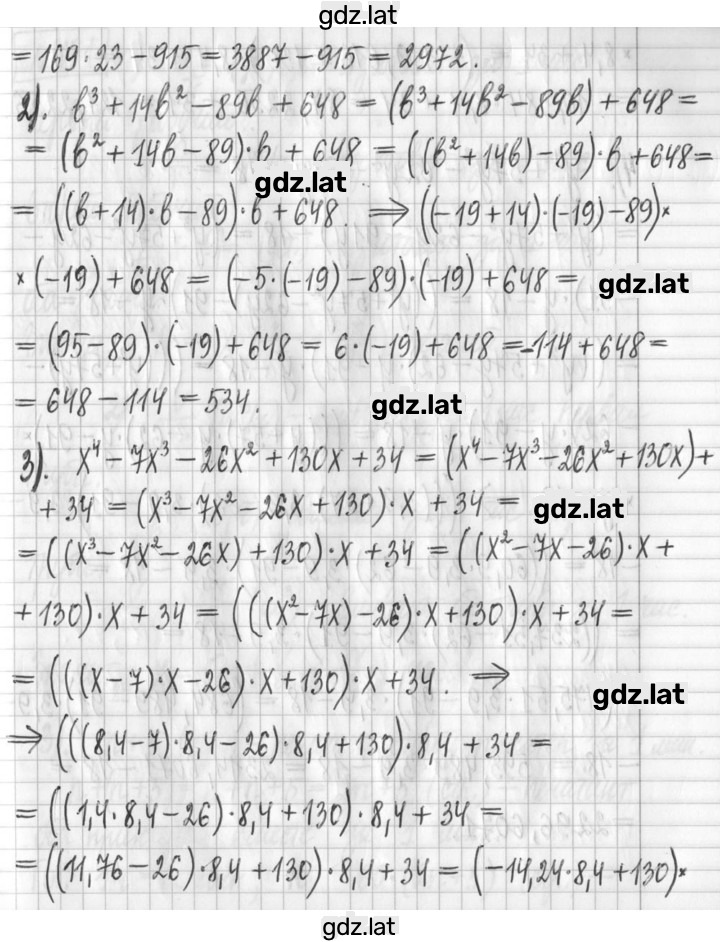 gdz.lat
= 169·23 − 915 = 3887 − 915 = 2972.
2). b³ + 14b² − 89b + 648 = (b³ + 14b² − 89b) + 648 =
= (b² + 14b − 89)·b + 648 = ((b² + 14b) − 89)·b + 648 =
gdz.lat
= ((b + 14)·b − 89)·b + 648. ⇒ ((−19 + 14)·(−19) − 89)×
×(−19) + 648 = (−5·(−19) − 89)·(−19) + 648 =
gdz.lat
= (95 − 89)·(−19) + 648 = 6·(−19) + 648 = −114 + 648 =
= 648 − 114 = 534.
gdz.lat
3). x⁴ − 7x³ − 26x² + 130x + 34 = (x⁴ − 7x³ − 26x² + 130x) +
+ 34 = (x³ − 7x² − 26x + 130)·x + 34 =
gdz.lat
= ((x³ − 7x² − 26x) + 130)·x + 34 = ((x² − 7x − 26)·x +
+ 130)·x + 34 = (((x² − 7x) − 26)·x + 130)·x + 34 =
= (((x − 7)·x − 26)·x + 130)·x + 34. ⇒
gdz.lat
⇒ (((8,4 − 7)·8,4 − 26)·8,4 + 130)·8,4 + 34 =
= ((1,4·8,4 − 26)·8,4 + 130)·8,4 + 34 =
= ((11,76 − 26)·8,4 + 130)·8,4 + 34 = (−14,24·8,4 + 130)×
gdz.lat